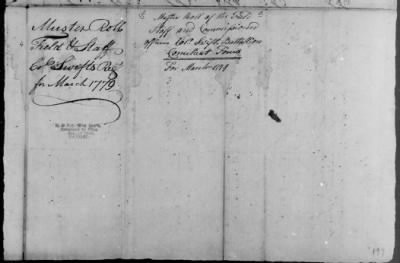 Muster Roll
Field & Staff
Colo Swifts Regt
for March 1779
Muster Roll of the Field
Staff and Commissioned
Officers Colo Swifts Battalion
Conecticut Forces
For March 1779
197